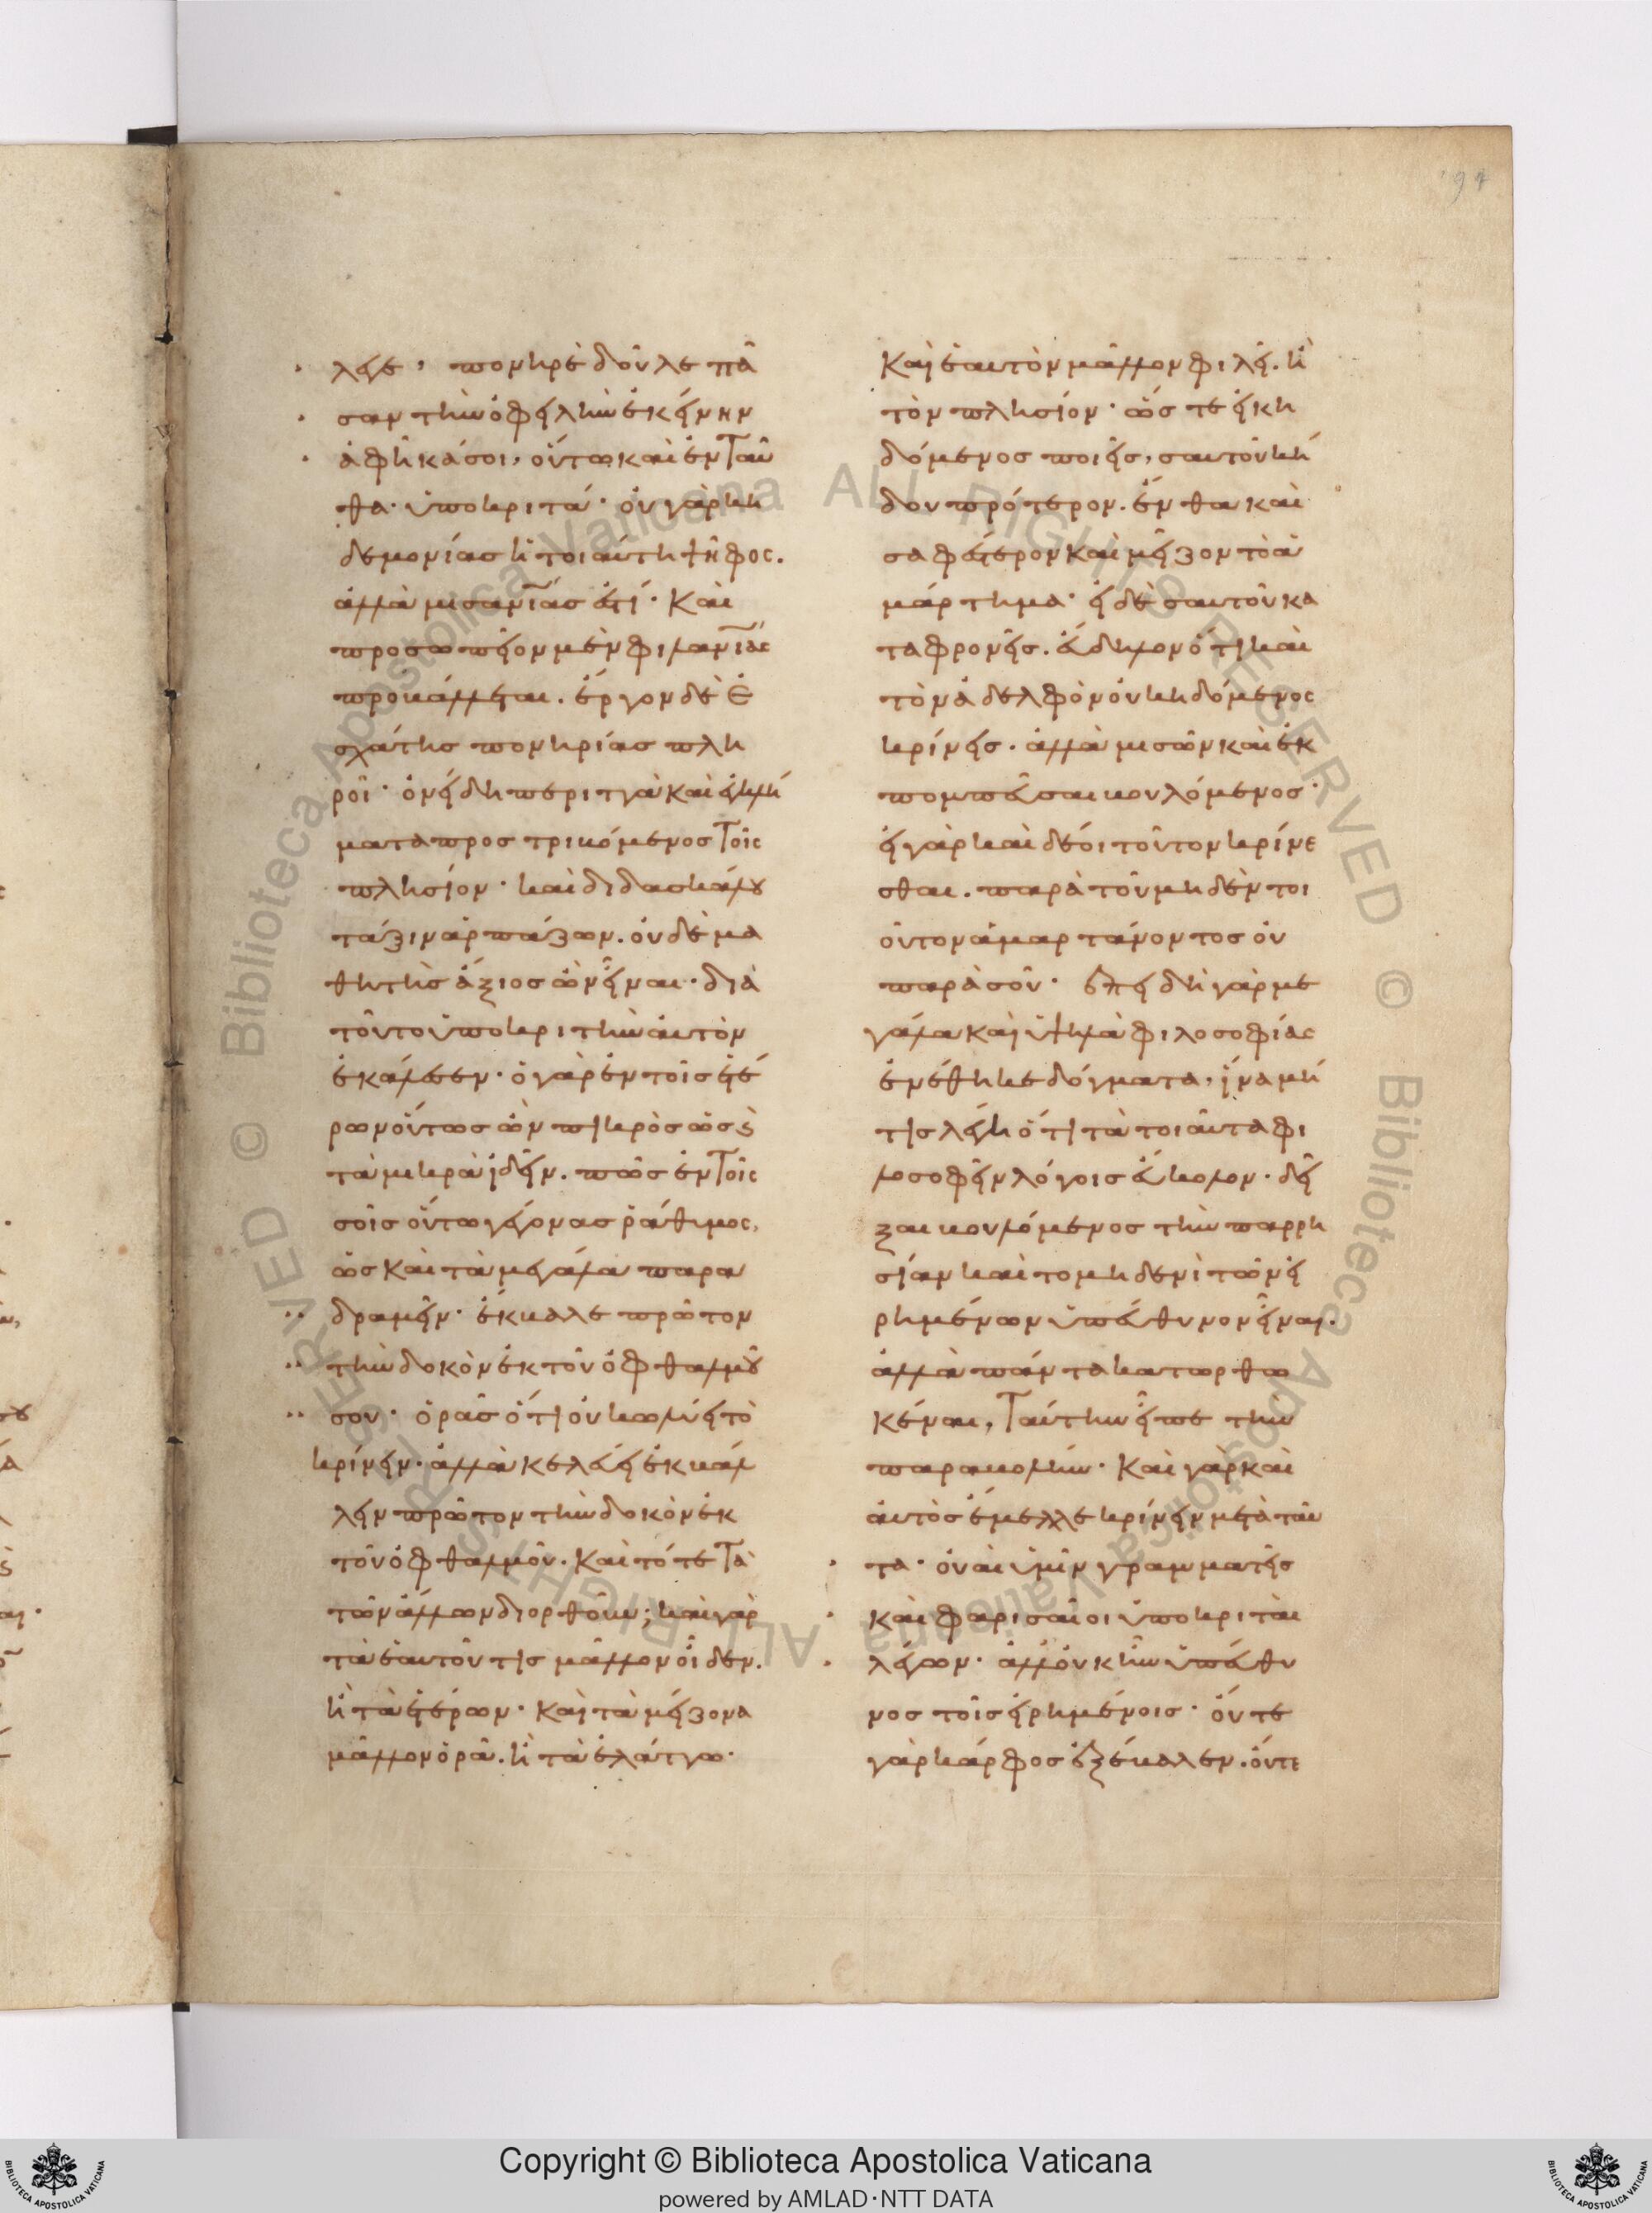 94
λεγε, πονηρὲ δοῦλε πᾶ
σαν τὴν ὀφειλὴν ἐκείνην
ἀφῆκά σοι, οὕτω καὶ ἐνταῦ
θα· ὑποκριτά· οὐ γὰρ κη
δεμονίας ἡ τοιαύτη ψῆφος.
ἀλλὰ μισανίας ἐστί· Καὶ
προσωπεῖον μὲν φιλανίας
προβάλλεται. ἔργον δὲ ἐ
σχάτης πονηρίας πλη
ροῖ· ὀνείδη περιττὰ καὶ ἐγκλή
ματα προστριβόμενος τοῖς
πλησίον· καὶ διδασκάλου
τάξιν ἁρπάζων. οὐδὲ μα
θητὴς ἄξιος ὢν εἶναι· διὰ
τοῦτο ὑποκριτὴν αὐτὸν
ἐκάλεσεν· ὁ γὰρ ἐν τοῖς ἑτέ
ρων οὕτως ὢν πικρὸς ὡς καὶ
τὰ μικρὰ ἰδεῖν. πῶς ἐν τοῖς
σοῖς οὕτω γέγονας ῥάθυμος,
ὡς καὶ τὰ μεγάλα παρα
δραμεῖν· ἔκβαλε πρῶτον
τὴν δοκὸν ἐκ τοῦ ὀφθαλμοῦ
σου· ὁρᾶς ὅτι οὐ κωλύει τὸ
κρίνειν· ἀλλὰ κελεύει ἐκβάλ
λειν πρῶτον τὴν δοκὸν ἐκ
τοῦ ὀφθαλμοῦ. Καὶ τότε τὰ
τῶν ἄλλων διορθοῦν; καὶ γὰρ
τὰ ἑαυτοῦ τις μᾶλλον οἶδεν.
ἢ τὰ ἑτέρων· Καὶ τὰ μείζονα
μᾶλλον ὁρᾷ. ἢ τὰ ἐλάττω·
Καὶ ἑαυτὸν μᾶλλον φιλεῖ. ἢ
τὸν πλησίον· ὥστε εἰ κη
δόμενος ποιεῖς, σαυτοῦ κή
δου πρότερον. ἔνθα καὶ
σαφέστερον καὶ μεῖζον τὸ ἁ
μάρτημα· εἰ δὲ σαυτοῦ κα
ταφρονεῖς. εὔδηλον ὅτι καὶ
τὸν ἀδελφὸν οὐ κηδόμενος
κρίνεις. ἀλλὰ μισῶν καὶ ἐκ
πομπεῦσαι βουλόμενος·
εἰ γὰρ καὶ δέοι τοῦτον κρίνε
σθαι. παρὰ τοῦ μηδὲν τοι
οῦτον ἁμαρτάνοντος οὐ
παρὰ σοῦ· ἐπειδὴ γὰρ με
γάλα καὶ ὑψηλὰ φιλοσοφίας
ἐνέθηκε δόγματα, ἵνα μή
τις λέγη ὅτι τὰ τοιαῦτα φι
λοσοφεῖν λόγοις εὔκολον· δεῖ
ξαι βουλόμενος τὴν παρρη
σίαν καὶ τὸ μηδενὶ τῶν εἰ
ρημένων ὑπεύθυνον εἶναι.
ἀλλὰ πάντα κατωρθω
κέναι, ταύτην εἶπε τὴν
παραβολήν· Καὶ γὰρ καὶ
αὐτὸς ἔμελλε κρίνειν μετὰ ταῦ
τα· οὐαὶ ὑμῖν γραμματεῖς
καὶ φαρισαῖοι ὑποκριταὶ
λέγων· ἀλλ' οὐκ ἦν ὑπεύθυ
νος τοῖς εἰρημένοις· οὔτε
γὰρ κάρφος ἐξέβαλεν. οὔτε
Copyright © Biblioteca Apostolica Vaticana
powered by AMLAD·NTT DATA